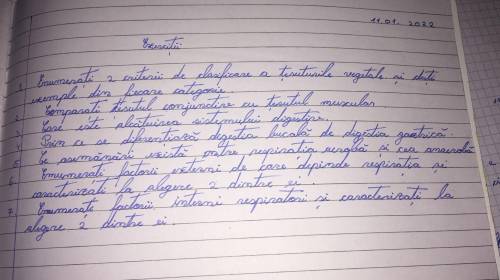 11.01.2022
Exerciții
1. Enumerați 2 criterii de clasificare a țesuturilor vegetale și dați
exemple din fiecare categorie.
2. Comparați țesutul conjunctive cu țesutul muscular
3. Care este alcătuirea sistemului digestive.
4. Prin ce se diferențiază digestia bucală de digestia gastrică.
5. Ce asemănări există între respirația aerobă și cea anaerobă
6. Enumerați factorii externi de care depinde respirația și
caracterizați la alegere 2 dintre ei.
7. Enumerați factorii interni respiratori și caracterizați la
alegere 2 dintre ei.